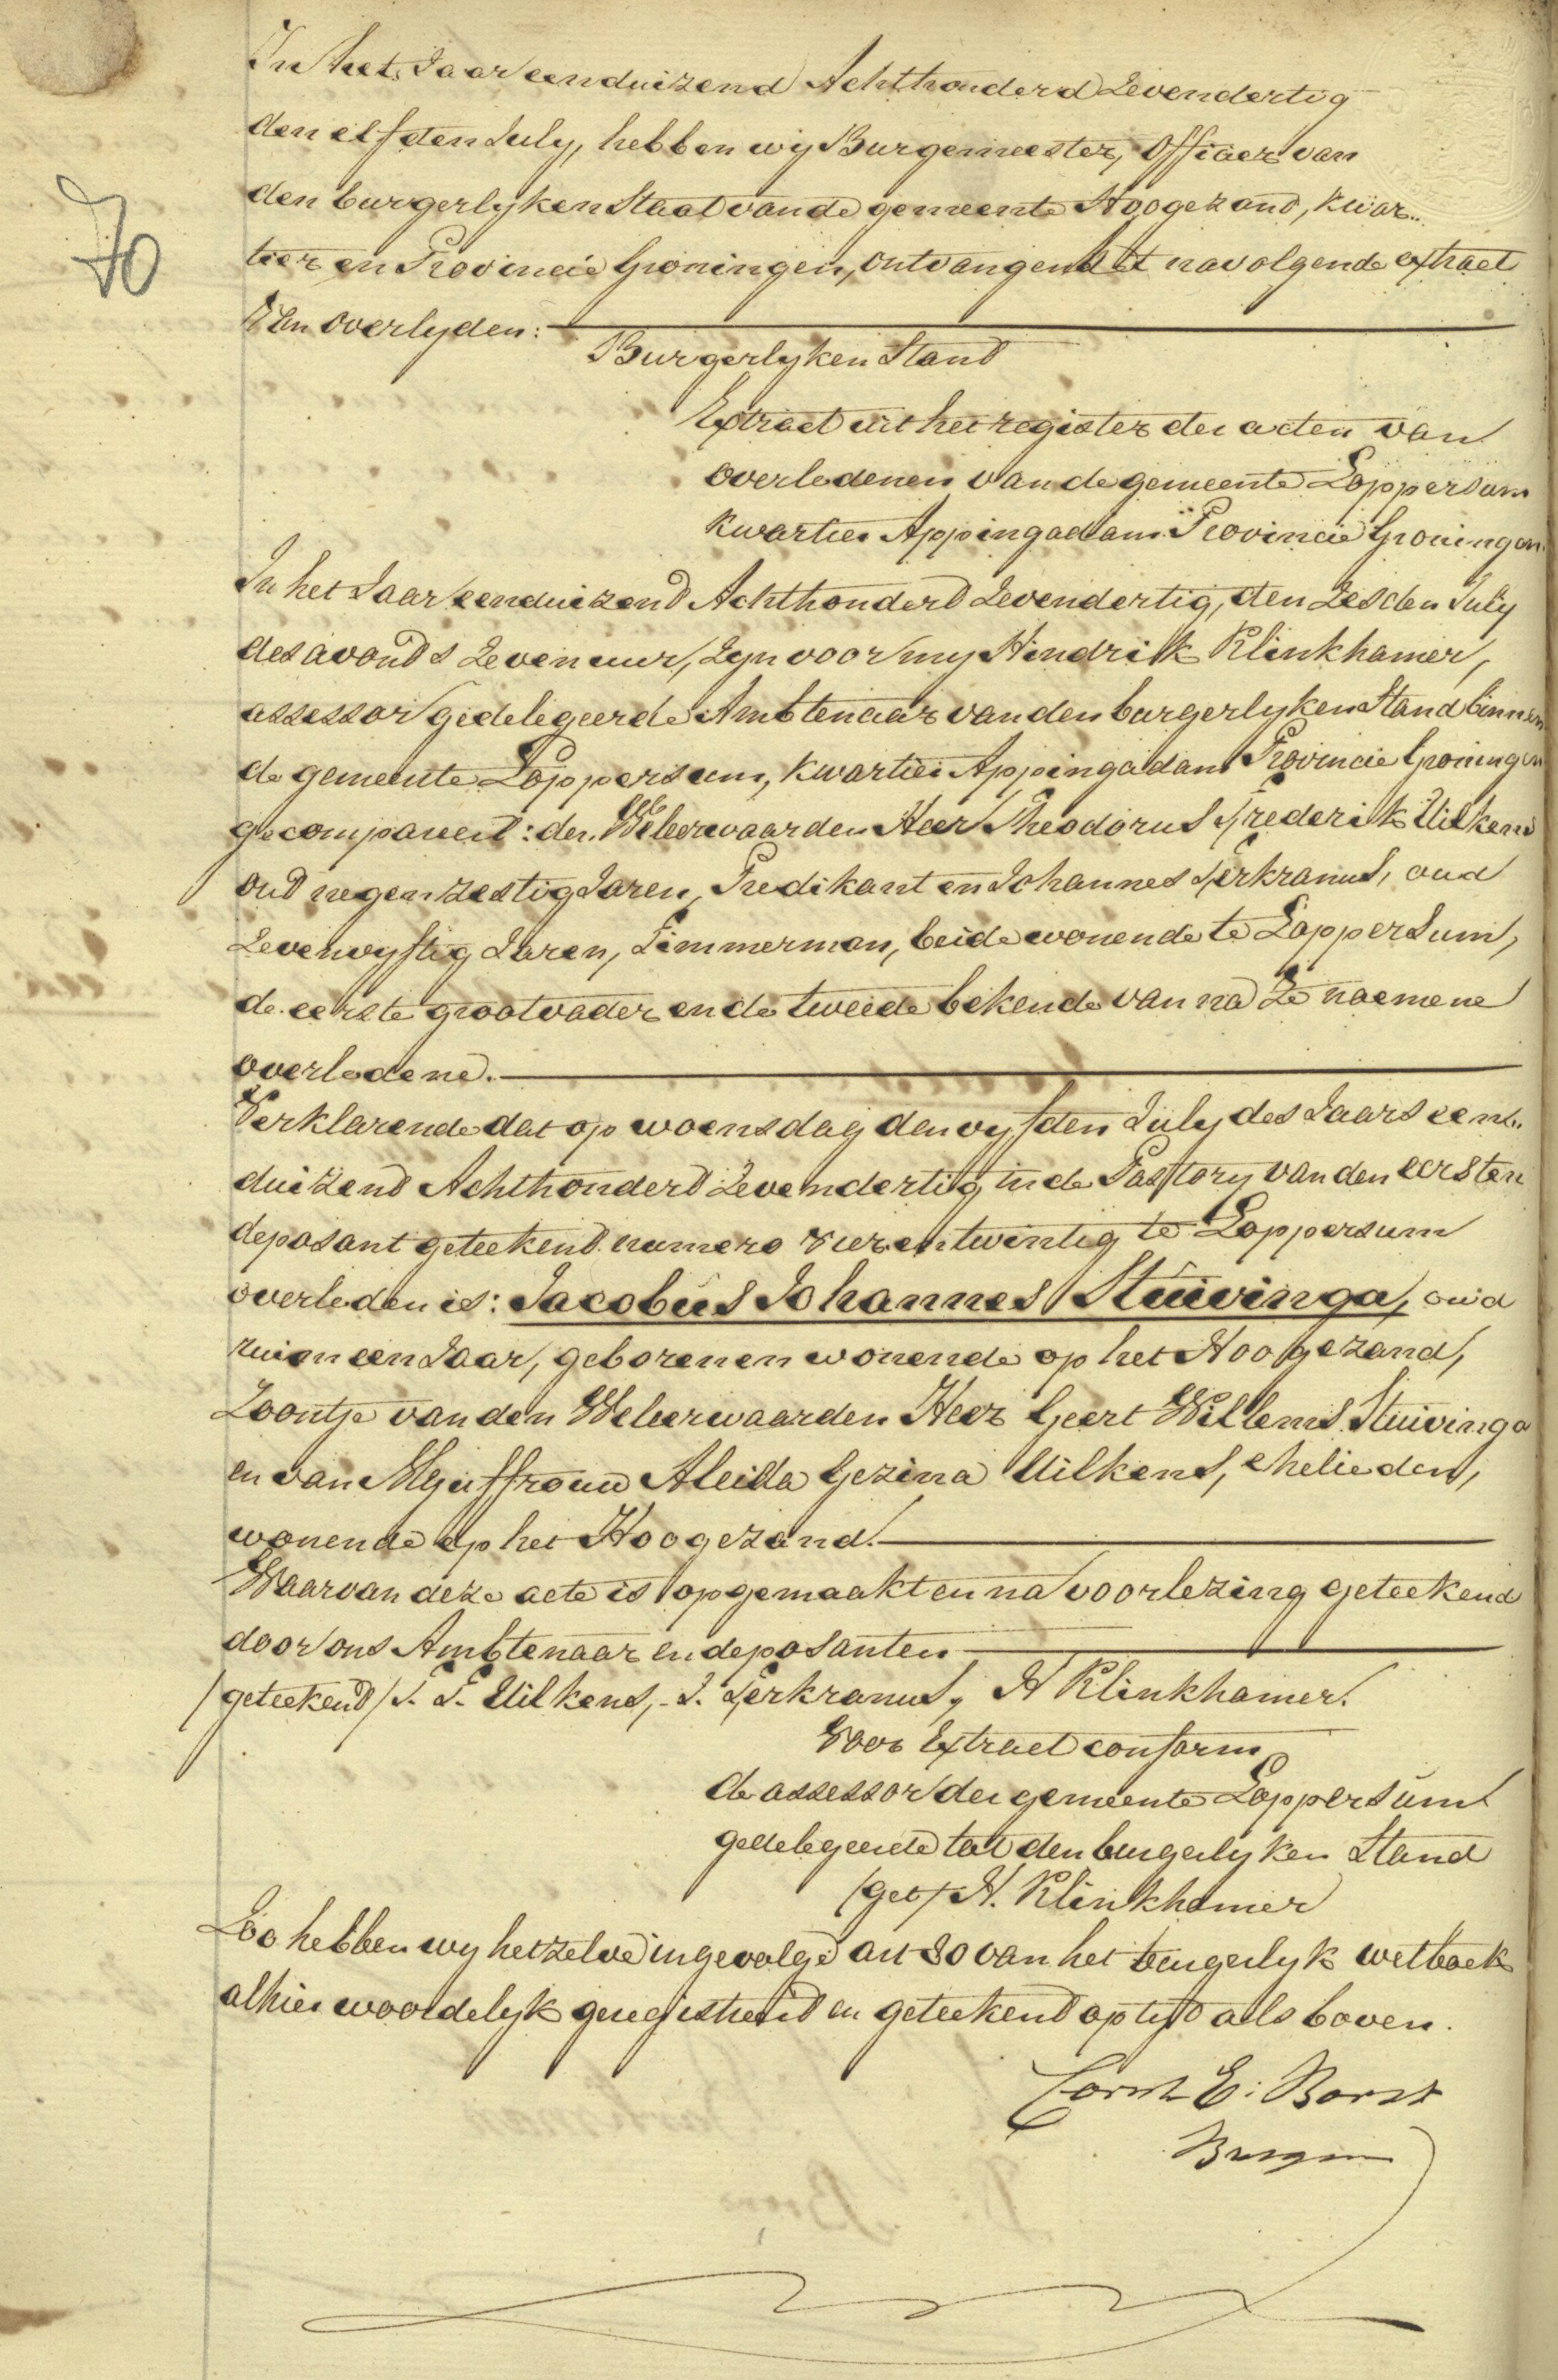 In het Jaar eenduizend Achthonderd Zevendertig
den elfden July, hebben wij Burgemeester, Officier van
den burgerlyken Staat van de gemeente Hoogezand, kwar..
tier en Provincie Groningen, ontvangen het navolgende extract
van overlyden:
70
Burgerlyken Stand
Extract uit het register der acten van
overledenen van de gemeente Loppersum
kwartier Appingadam Provincie Groningen.
In het Jaar eenduizend Achthonderd Zevendertig, den Zesden July
des avonds Zeven uur, Zyn voor my Hindrik Klinkhamer,
assessor gedelegeerde Ambtenaar van den burgerlyken Stand binnen
de gemeente Loppersum, kwartier Appingadam Provincie Groningen
gecompareerd: den WelEerwaarden Heer Theodorus Frederik Uilkens
oud negenzestig Jaren, Predikant en Johannes Terkranus, oud
Zevenvyftig Jaren, Timmerman, beide wonende te Loppersum,
de eerste grootvader en de tweede bekende van na Ze noemene
overledene.
Verklarende dat op woensdag den vyfden July des Jaars een..
duizend Achthonderd Zevendertig in de Pastory van den eersten
deposant geteekend numero vierentwintig te Loppersum
overleden is: Jacobus Johannes Stuivinga, oud
ruim een Jaar, geboren en wonende op het Hoogezand,
Zoontje van den WelEerwaarden Heer Geert Willems Stuivinga
en van Mejuffrouw Aleida Gezina Uilkens, ehelieden,
wonende op het Hoogezand.
Waarvan deze acte is opgemaakt en na voorlezing geteekend
door ons Ambtenaar en deposanten
/geteekend/ T. F. Uilkens, J. Terkranus, H Klinkhamer.
Voor Extract conform
de assessor der gemeente Loppersum
gedelegeerde tot den burgerlyken Stand
/get/ H. Klinkhamer
Zoo hebben wy hetzelve ingevolge art 80 van het burgerlyk wetboek
alhier woordelyk geregistreerd en geteekend op tyd als boven.
E: Borst